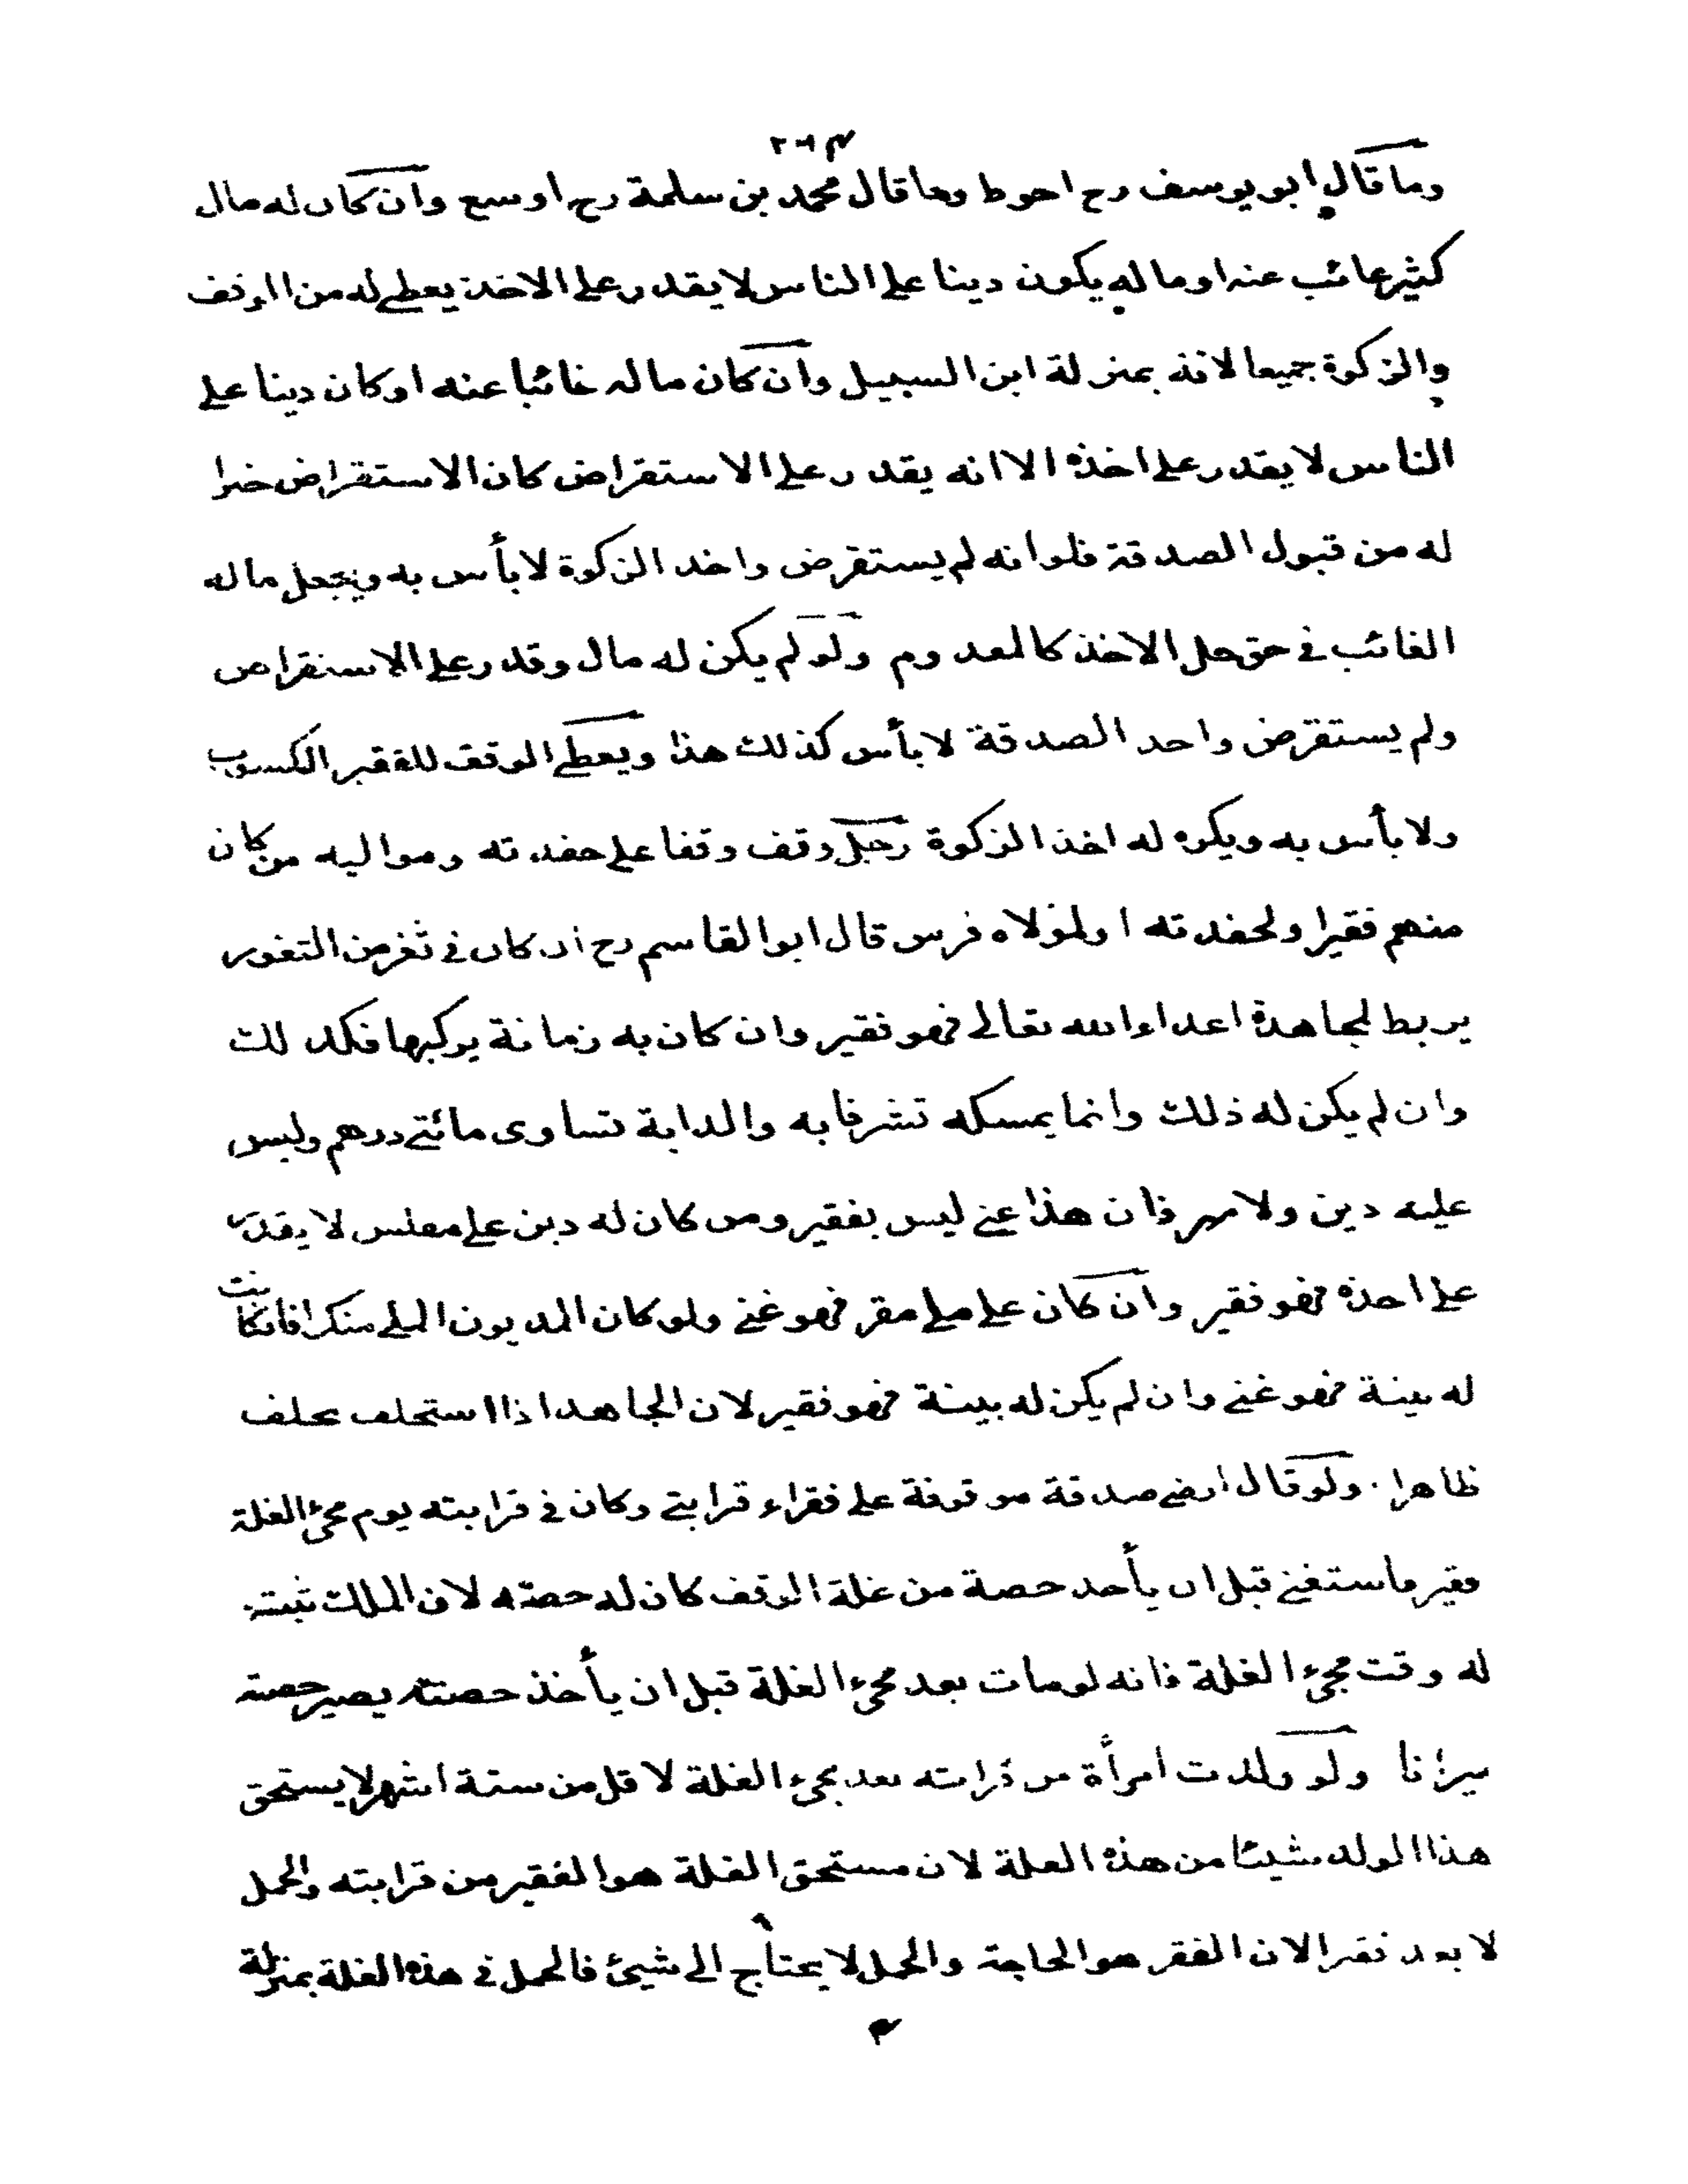 وما قال ابو يوسف رح احوط وما قال محمد بن سلمة رح اوسع وان كان له مال
كثير غائب عنه او ماله يكون دينا على الناس لا يقدر على الاخذ يعطى له من الوقف
والزكوة جميعا لانه بمنزلة ابن السبيل وان كان ماله غائبا عنه او كان دينا على
الناس لا يقدر على اخذه الا انه يقدر على الاستقراض كان الاستقراض خيرا
له من قبول الصدقة فلو انه لم يستقرض واخذ الزكوة لا بأس به ويجعل ماله
الغائب في حق حل الاخذ كالمعدوم ولو لم يكن له مال وقدر على الاستقراض
ولم يستقرض واخد الصدقة لا بأس كذلك هذا ويعطى الوقف للفقير الكسوب
ولا بأس به ويكره له اخذ الزكوة رجل وقف وقفا على حفدته ومواليه من كان
منهم فقيرا ولحفدته او لمولاه فرس قال ابو القاسم رح ان كان في ثغر من الثغور
يربط لمجاهدة اعداء الله تعالى فهو فقير وان كان به زمانة يركبها فكذلك
وان لم يكن له ذلك وانما يمسكه تشرفا به والدابة تساوى مائتى درهم وليس
عليه دين ولا مهر فان هذا غنى ليس بفقير ومن كان له دين على مفلس لا يقدر
على اخذه فهو فقير وان كان على ملى مقر فهو غنى ولو كان المديون الملى منكرا فان كانت
له بينة فهو غنى وان لم يكن له بينة فهو فقير لان الجاهد اذا استحلف يحلف
ظاهرا . ولو قال ارضى صدقة موقوفة على فقراء قرابتى وكان في قرابته يوم مجئ الغلة
فقير فاستغنى قبل ان يأخد حصة من غلة الوقف كان له حصته لان الملك ثبت
له وقت مجئ الغلة فانه لو مات بعد مجئ الغلة قبل ان يأخذ حصته يصير حصته
ميراثا ولو ولدت امرأة من قرابته بعد مجئ الغلة لاقل من ستة اشهر لا يستحق
هذا الولد شيئا من هذه الغلة لان مستحق الغلة هو الفقير من قرابته والحمل
لا يعد فقيرا لان الفقر هو الحاجة والحمل لا يحتاج الى شيئ فالحمل في هذه الغلة بمنزلة